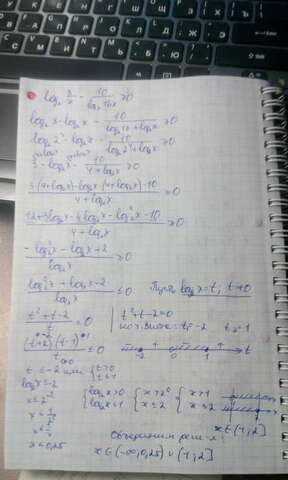 log₂ 8/x − 10/log₂16x ≥ 0
log₂8 − log₂x − 10/(log₂16 + log₂x) ≥ 0
log₂2³ − log₂x − 10/(log₂2⁴ + log₂x) ≥ 0
3 − log₂x − 10/(4 + log₂x) ≥ 0
(3·(4 + log₂x) − log₂x·(4 + log₂x) − 10)/(4 + log₂x) ≥ 0
(12 + 3log₂x − 4log₂x − log₂²x − 10)/(4 + log₂x) ≥ 0
(−log₂²x − log₂x + 2)/log₂x ≥ 0
(log₂²x + log₂x − 2)/log₂x ≤ 0 Пусть log₂x = t, t ≠ 0
(t² + t − 2)/t = 0 t² + t − 2 = 0
t₁ = −2 t₂ = 1
(t+2)(t−1)/t ≤ 0
−2 0 1 t
t ≤ −2 или { t > 0 t ≤ 1
log₂x ≤ −2 { log₂x > 0 log₂x ≤ 1 { x > 2⁰ x ≤ 2 { x > 1 x ≤ 2
x ≤ 2⁻²
x ≤ 1/4
x ≤ 0,25 x ∈ (1; 2]
Объединим реш-я:
x ∈ (−∞; 0,25) ∪ (1; 2]